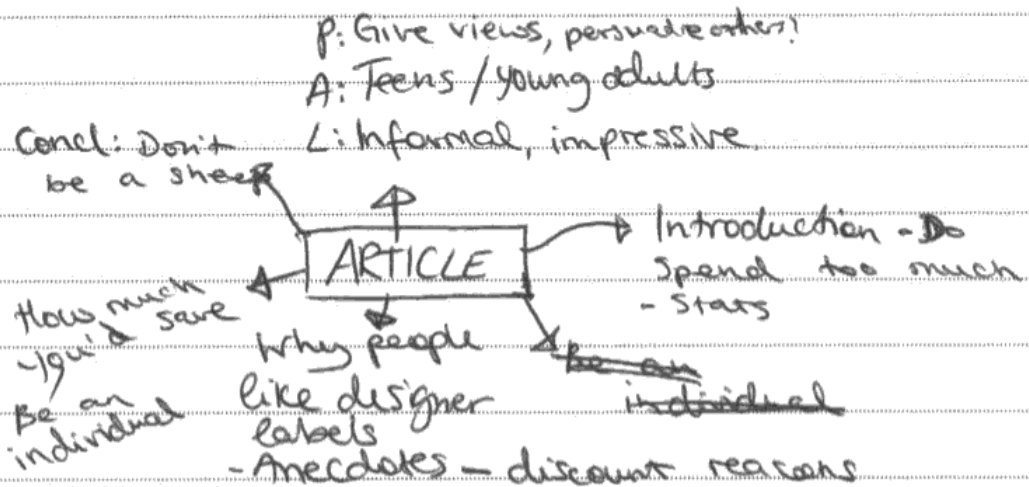 P: Give views, persuade others!
A: Teens / young adults
L: Informal, impressive.
Concl: Don't
be a sheep
ARTICLE
Introduction - Do
spend too much
- Stats
How much
you'd save
Be an
individual
Why people
like designer
labels
- Anecdotes - discount reasons
Be an
individual